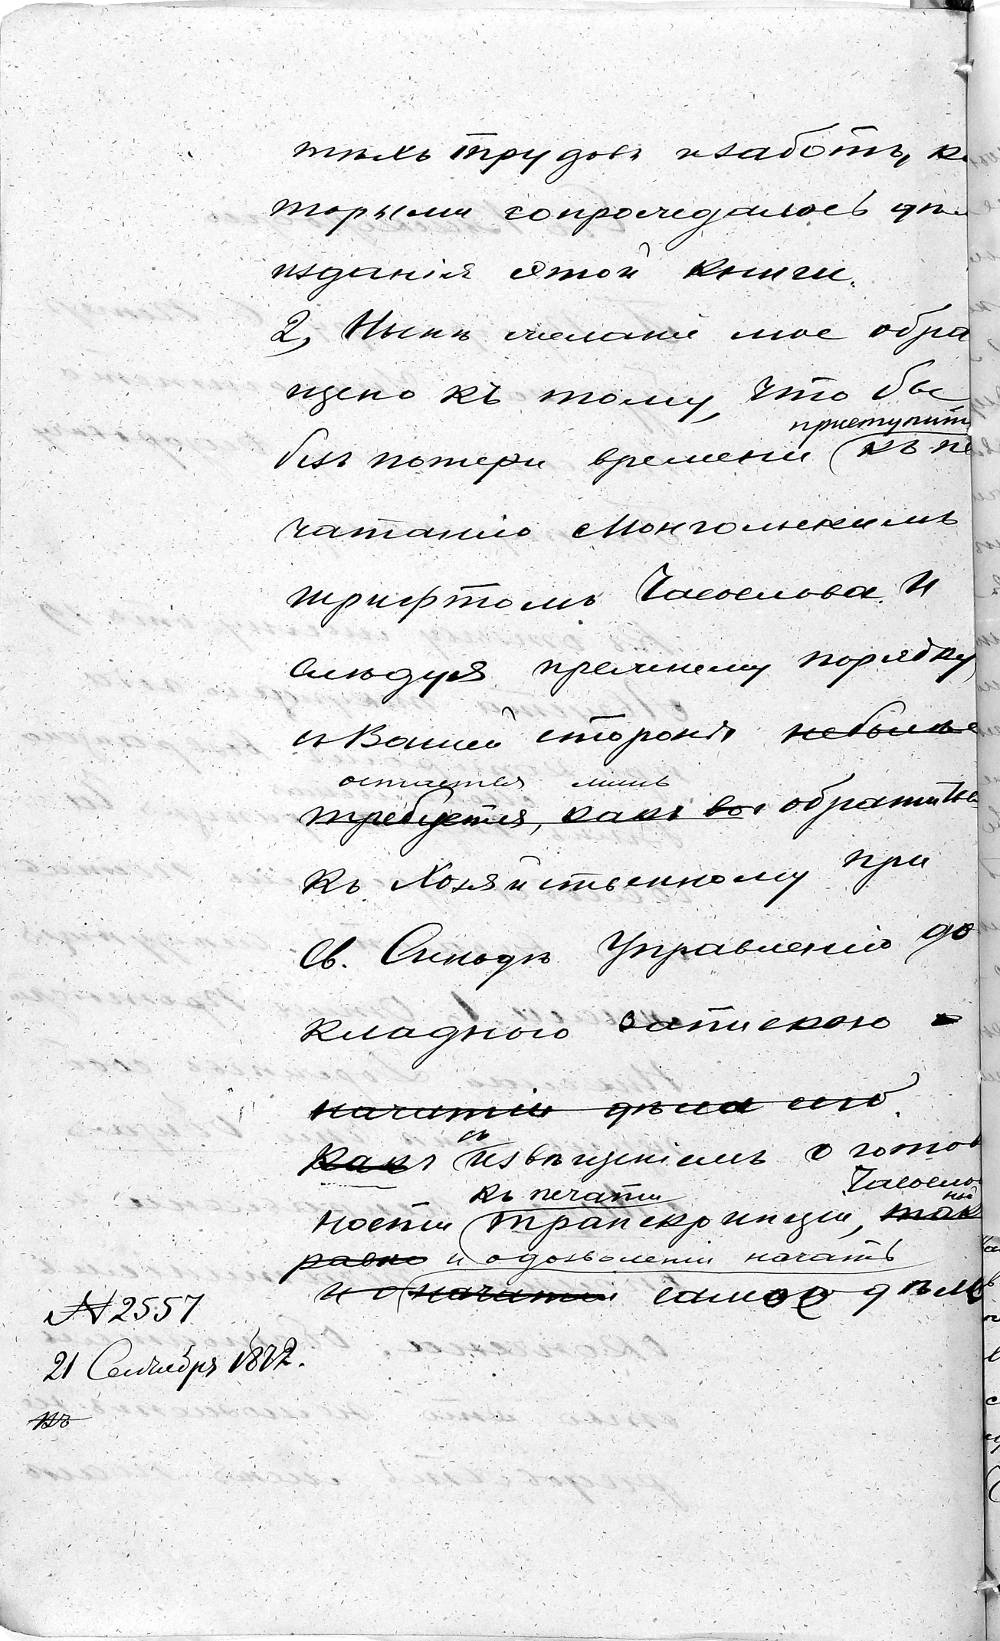 тѣхъ трудовъ и заботъ, ко
торыми сопровождалось дѣл
изданія этой книги.
2, Нынѣ желаніе мое обра
щено къ тому, что бы
приступить
безъ потери времени къ пе
чатанію Монгольскимъ
шрифтомъ Часослова. И
слѣдуя прежнему порядку
съ Вашей стороны не больше
остается лишь
требуется, какъ вог обратиться
къ Хозяйственному при
Св. Синодѣ Управленію до
кладною запискою о
начатіи дѣла сего.
съ
какъ извѣщеніемъ о готов
къ печати Часослов
ности транскрипціи, так
ный
равно и о дозволеніи начать
и о начатіи самое дѣло
№ 2557
21 Сентябрь 1872.